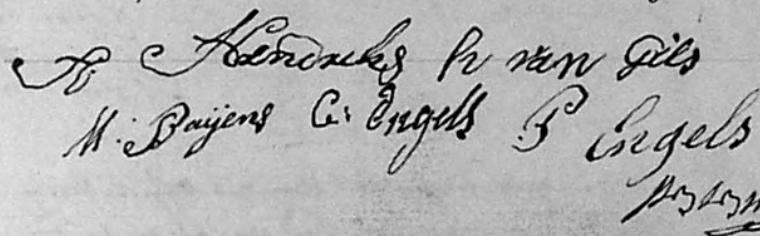 A Hendriks P. van Gils
M. Baijens C. Engels P Engels